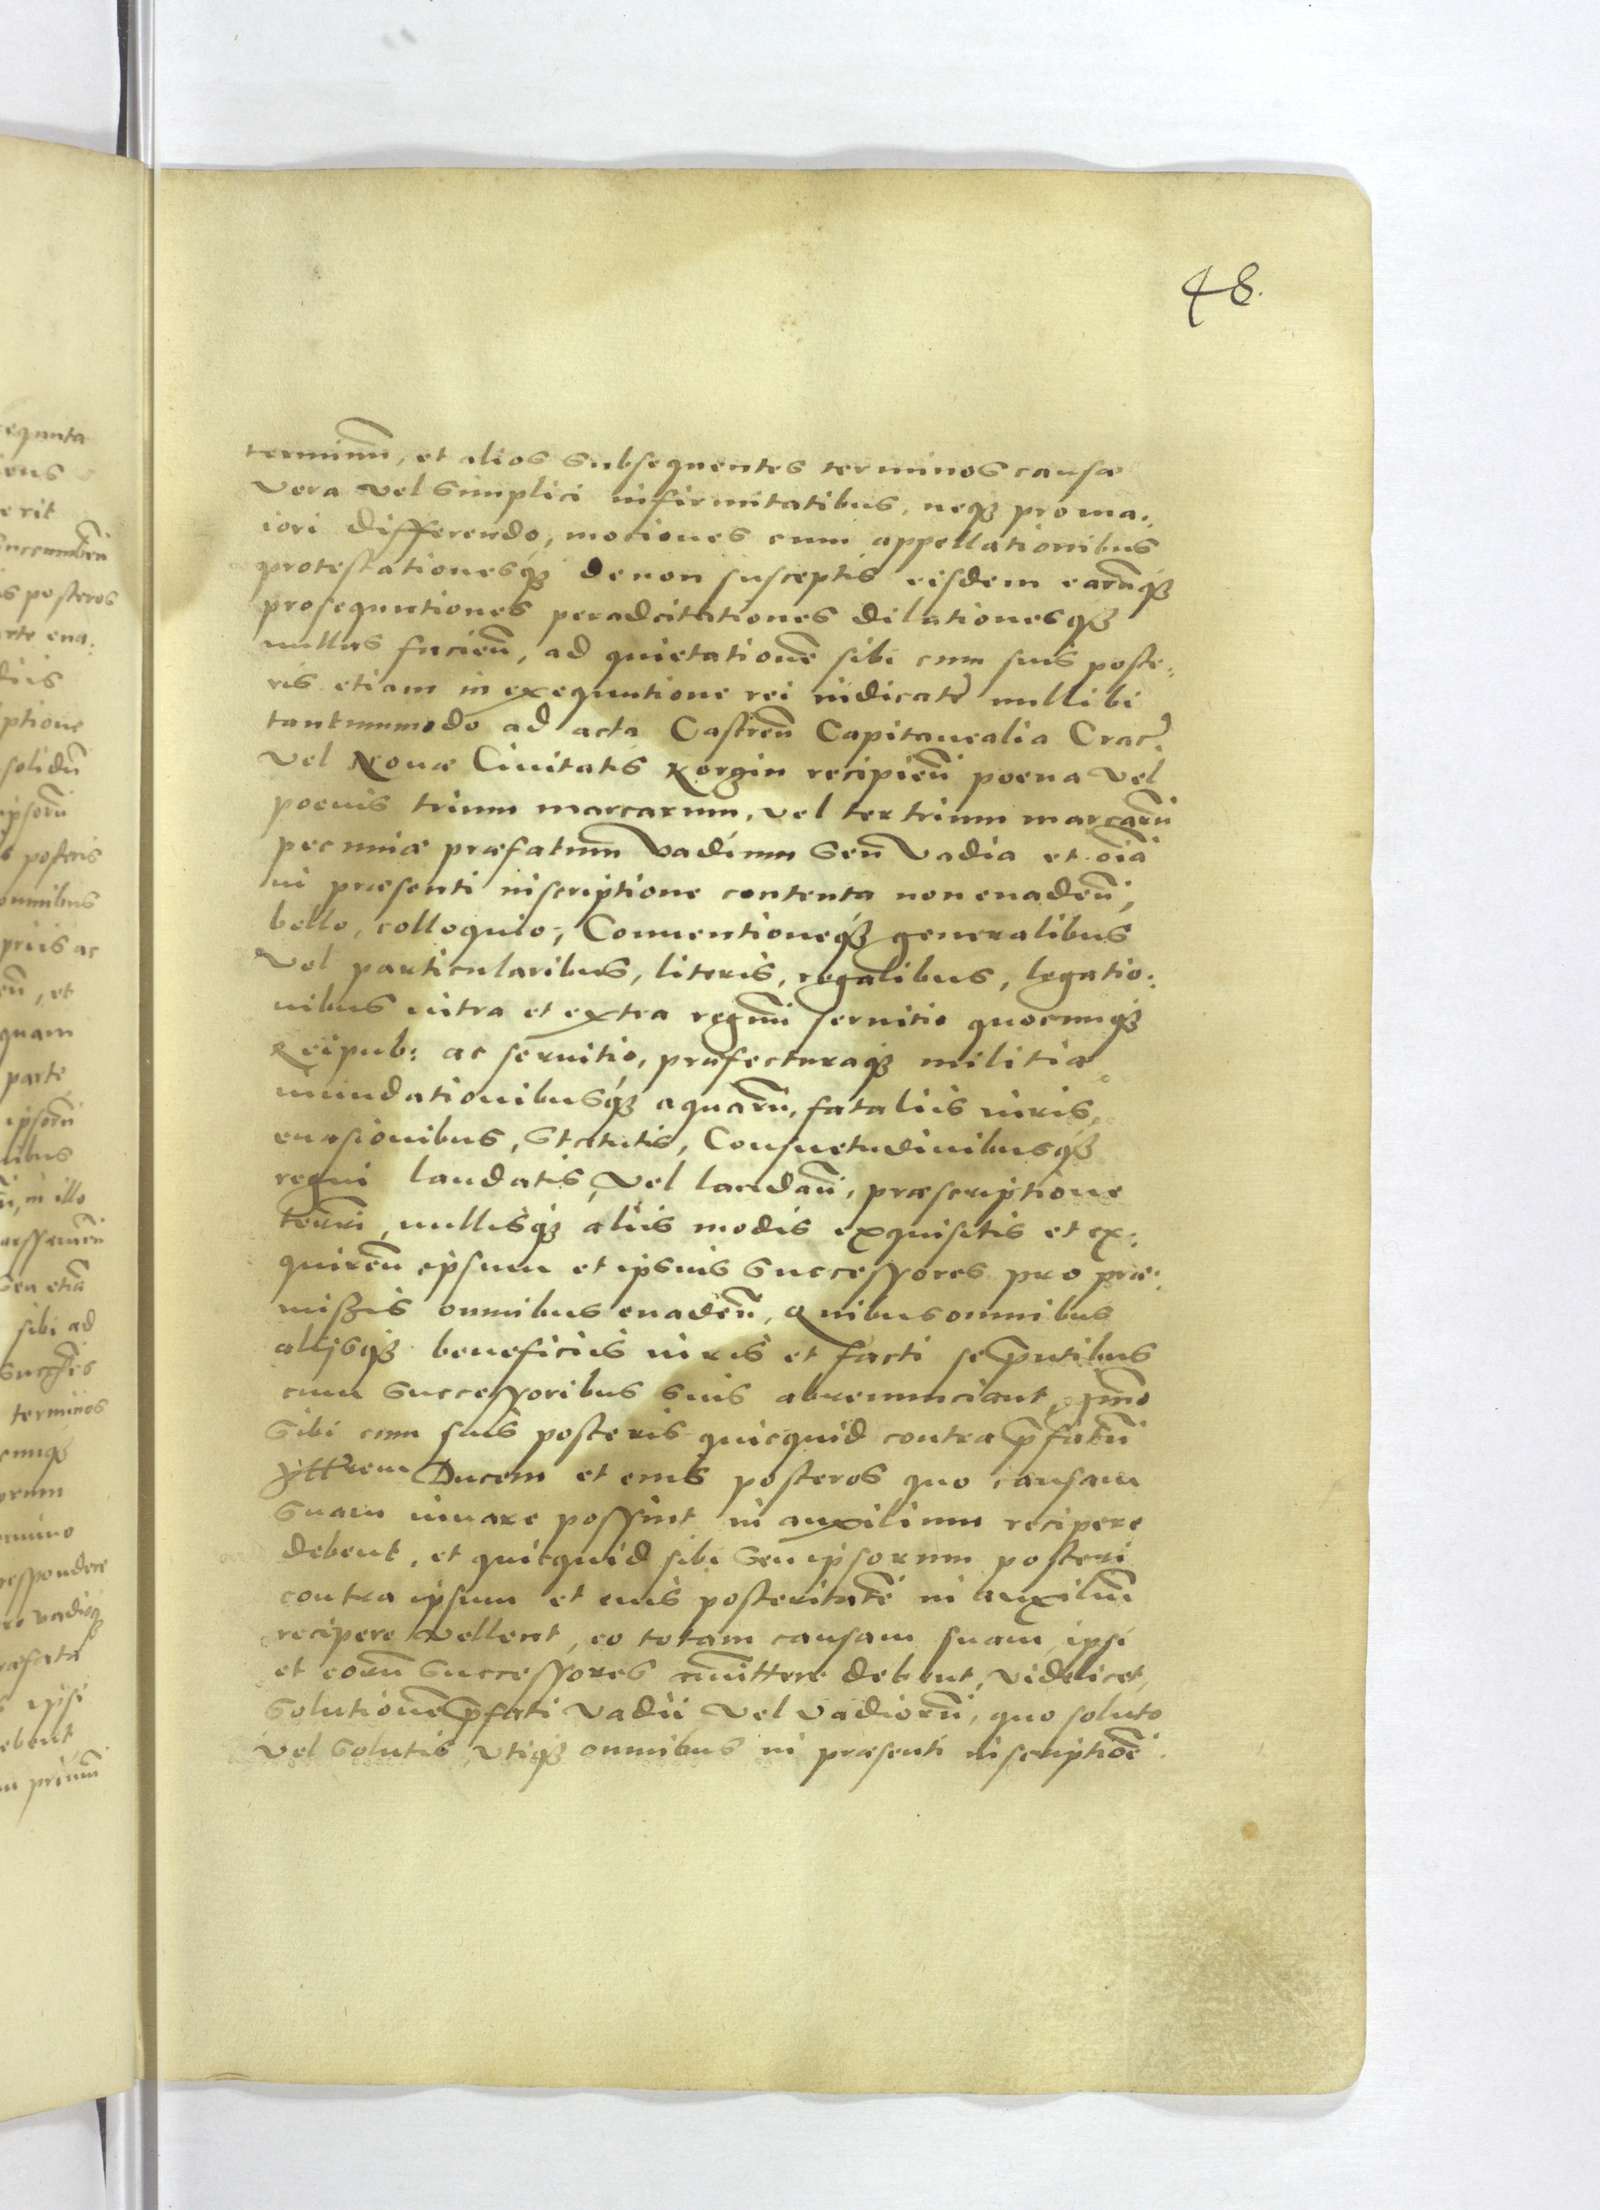 48.
terminū, et alios subsequentes terminos causæ
vera vel simplici infirmitatibus, neq₃ pro ma:
iori differendo, motiones cum appellationibus
protestationesq₃ de non susceptis eisdem earūq₃
prosequutiones per adcitationes dilationesq₃
nullas facień, ad quietationē sibi cum suis poste:
ris etiam in exequutione rei iudicatē nullibi
tantummodo ad acta Castreń Capitanealia Crac̄.
vel Nouæ Ciuitatis Korzin recipień poena vel
poenis trium marcarum, vel ter trium marcarū
pecuniæ præfatum vadium seu vadia et oīa
in præsenti inscriptione contenta non euadeń,
bello, colloquio, Conuentioneq₃ generalibus
vel particularibus, literis, regalibus, legatio:
nibus intra et extra regnū seruitio quocunq₃
Reipub: ac seruitio, præfecturaq₃ militiæ
inundationibusq₃ aquarū, fataliis iuris,
euasionibus, statutis, Consuetudinibusq₃
regni laudatis, vel laudań, præscriptione
terrū, nullisq₃ aliis modis exquisitis et ex:
quireń ipsum et ipsius successores pro præ:
mißis omnibus euadeń, Quibus omnibus
alijsq₃ beneficiis iuris et facti se p̄ntibus
cum successoribus suis abrenunciant, Im̄o
sibi cum suis posteris quicquid contra p̄fatū
Illrem Ducem et eius posteros quo causam
suam iuuare possint in auxilium recipere
debent, et quicquid sibi seu ipsorum posteri
contra ipsum et eius posteritatē in auxiliū
recipere vellent, eo totam causam suam ipsi
et eorū successores am̄ittere debent, videlicet,
solutionē p̄fati vadii vel vadiorū, quo soluto
vel solutis, vtiq₃ omnibus in præsenti inscriptiōe